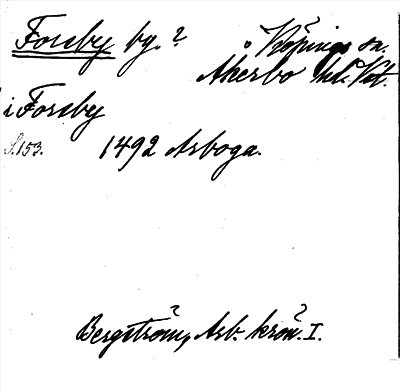 Forsby by.? Köpings sn.
Åkerbo hd. Vstm.
i Forsby
S. 153. 1492 Arboga.
Bergström, Arb. krön. I.